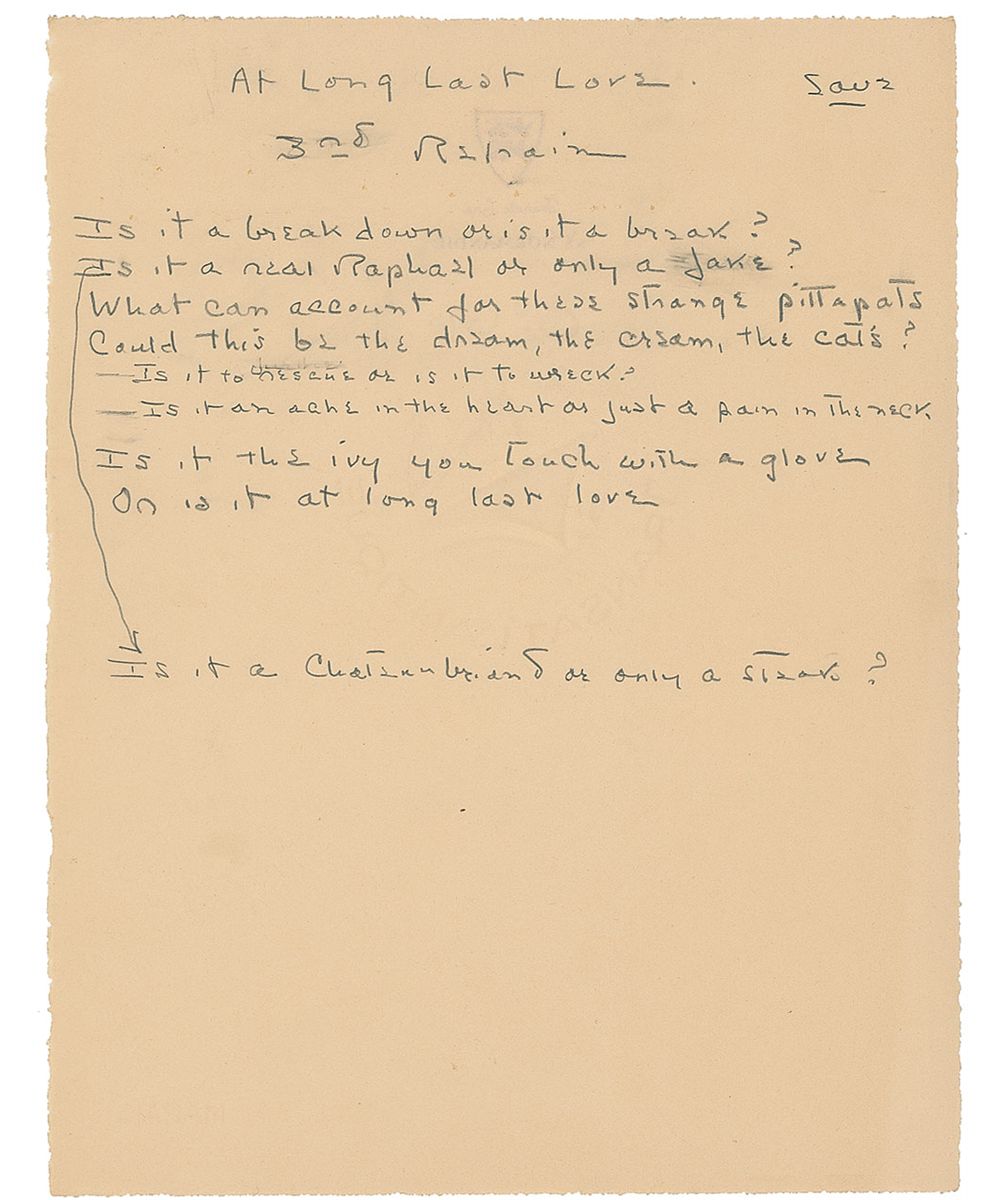 At Long Last Love. Save
3rd Refrain
Is it a breakdown or is it a break?
Is it a real Raphael or only a fake?
What can account for these strange pittapats
Could this be the dream, the cream, the cat's?
— Is it to rescue or is it to wreck?
— Is it an ache in the heart or just a pain in the neck.
Is it the ivy you touch with a glove
Or is it at long last love
Is it a Chateaubriand or only a steak?